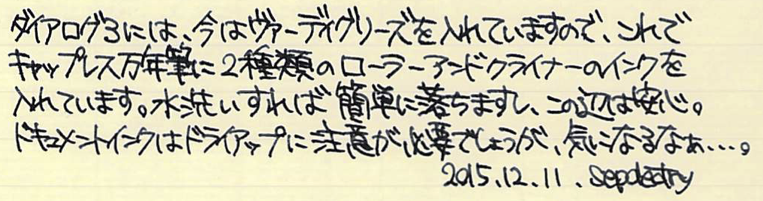 ダイアログ3には、今はヴァーディグリーズを入れていますので、これで
キャップレス万年筆に2種類のローラーアンドクライナーのインクを
入れています。水洗いすれば簡単に落ちますし、この辺は安心。
ドキュメントインクはドライアップに注意が必要でしょうが、気になるなぁ…。
2015.12.11.